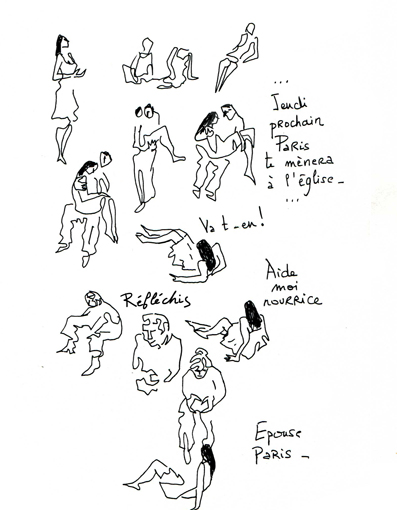 ...
Jeudi
prochain
Paris
te mènera
à l'église_
...
Va t_en!
Aide
moi
nourrice
Réfléchis
Epouse
Paris_